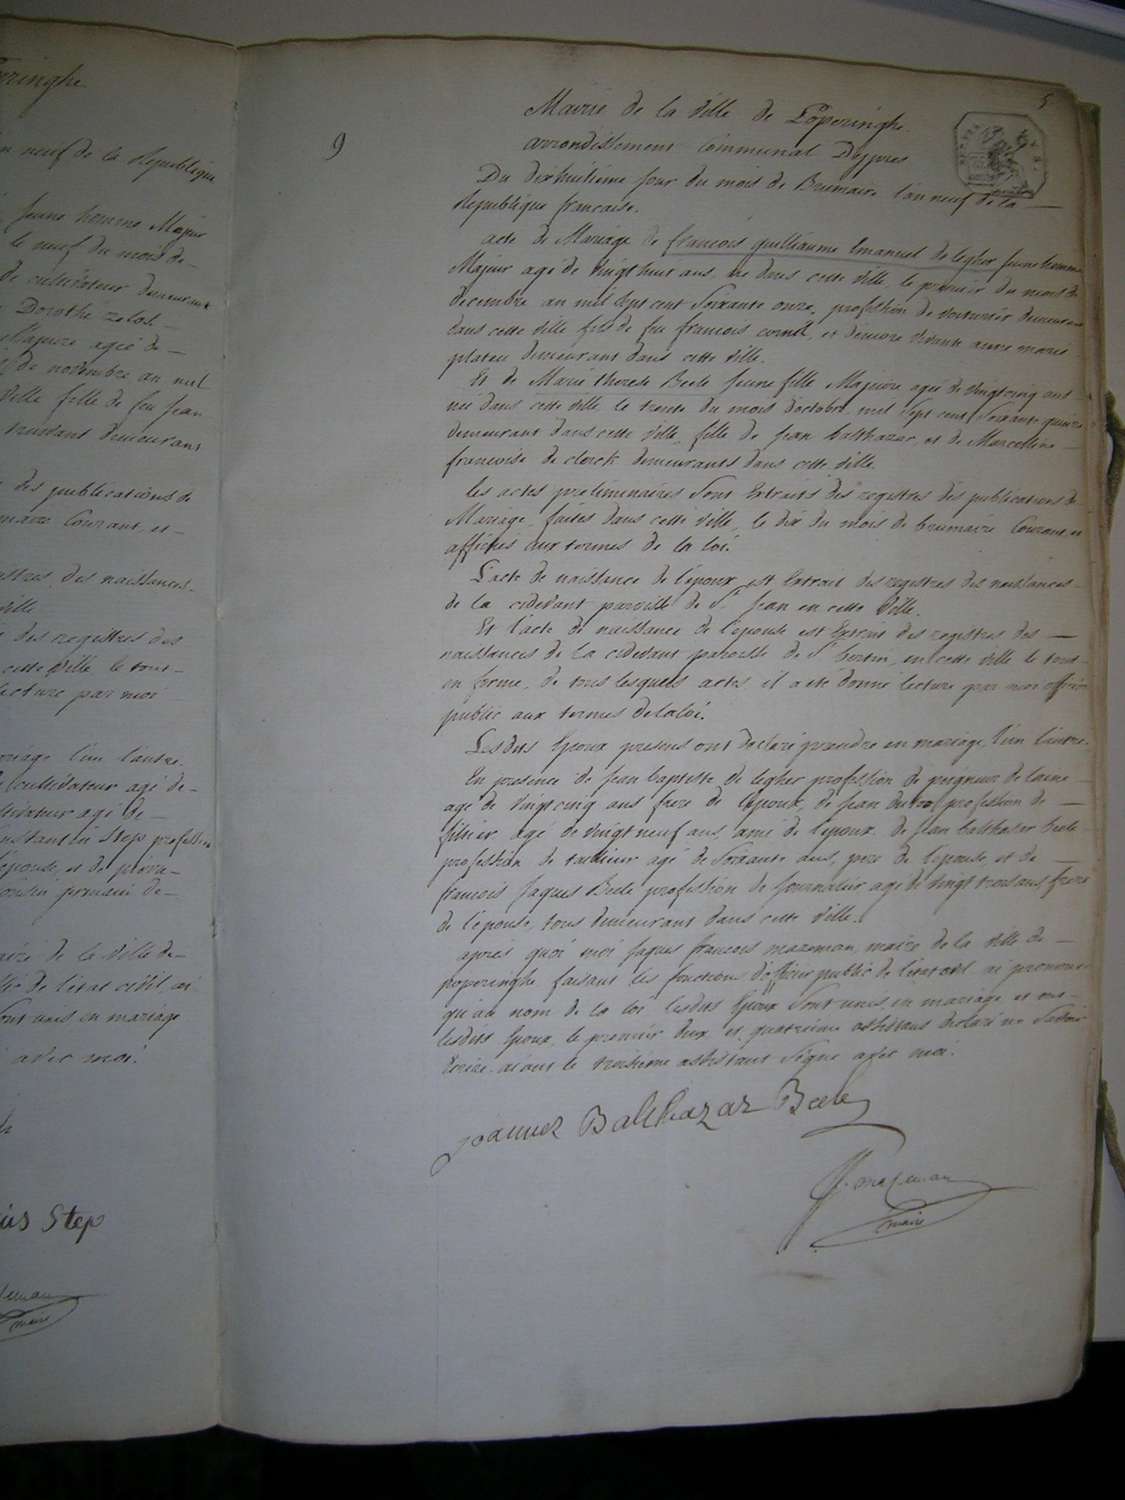 eringhe
neuf de la Republique
jeune homme Majeur
le neuf du mois de
de cultivateur demeurant
Dorothé
Majeure agée de
de novembre an mil
ville fille de feu jean
demeurans
des publications de
maire Courant, et
des naissances
ville
des registres des
cette Ville le tout
lecture par moi
mariage l'un l'autre.
cultivateur agé de
cultivateur agé de
Step profession
l'epouse, et de pierre
cousin germain de
maire de la Ville de
de l'etat civil, ai
sont unis en mariage
avec moi.
Step
maire
5
9
Mairie de la Ville de Poperinghe.
arrondissement Communal D'ypres
Du dixhuitieme jour du mois de Brumaire l'an neuf de la
Republique francaise.
acte de Mariage de francois guilliaume Emanuel de legher jeune homme
Majeur agé de vingt huit ans, né dans cette Ville, le premier du mois de
decembre an mil sept cent Soixante onze, profession de voiturier demeurant
dans cette Ville fils de feu francois cornil, et d'encore vivante anne marie
plateu demeurant dans cette Ville.
Et de Marie therese Beele jeune fille Majeure agée de vingtcinq ans
née dans cette Ville le trente du mois d'octobre mil sept cent Soixante quinze
demeurant dans cette Ville, fille de jean balthazar, et de Marcelline
francoise de clerck demeurants dans cette Ville.
les actes preliminaires Sont Extraits des registres des publications de
Mariage faites dans cette Ville, le dix du mois de brumaire Courant, et
affichés aux termes de la loi.
L'acte de naissance de l'epoux est Extrait des registres des naissances
de la cidevant paroisse de St. jean en cette Ville.
Et l'acte de naissance de l'epouse est Extrait des registres des
naissances de la cidevant paroisse de St. bertin, en cette Ville le tout
en forme, de tous lesquels actes il a eté donné lecture par moi officier
public aux termes de la loi.
Lesdits Epoux presens ont declaré prendre en mariage, l'un l'autre.
En presence de jean baptiste de legher profession de peigneur de laine
agé de vingtcinq ans frere de l'epoux, de jean profession de
agé de vingt neuf ans, ami de l'epoux, de jean balthazar beele
profession de agé de Soixante ans, pere de l'epouse, et de
francois jaques Beele profession de journalier agé de vingt trois ans, frere
de l'epouse, tous demeurant dans cette Ville.
aprés quoi moi jaques francois mazeman, maire de la Ville de
poperinghe faisant les fonctions d'officier public de l'etat civil ai prononcé
qu'au nom de la loi lesdits Epoux Sont unis en mariage et ont
lesdits Epoux, le premier deux et quatrieme assistans declaré ne Savoir
Ecrire aiant le troisieme assistant Signé avec moi.
joannes Balthazar Beele
J. f. mazeman
maire